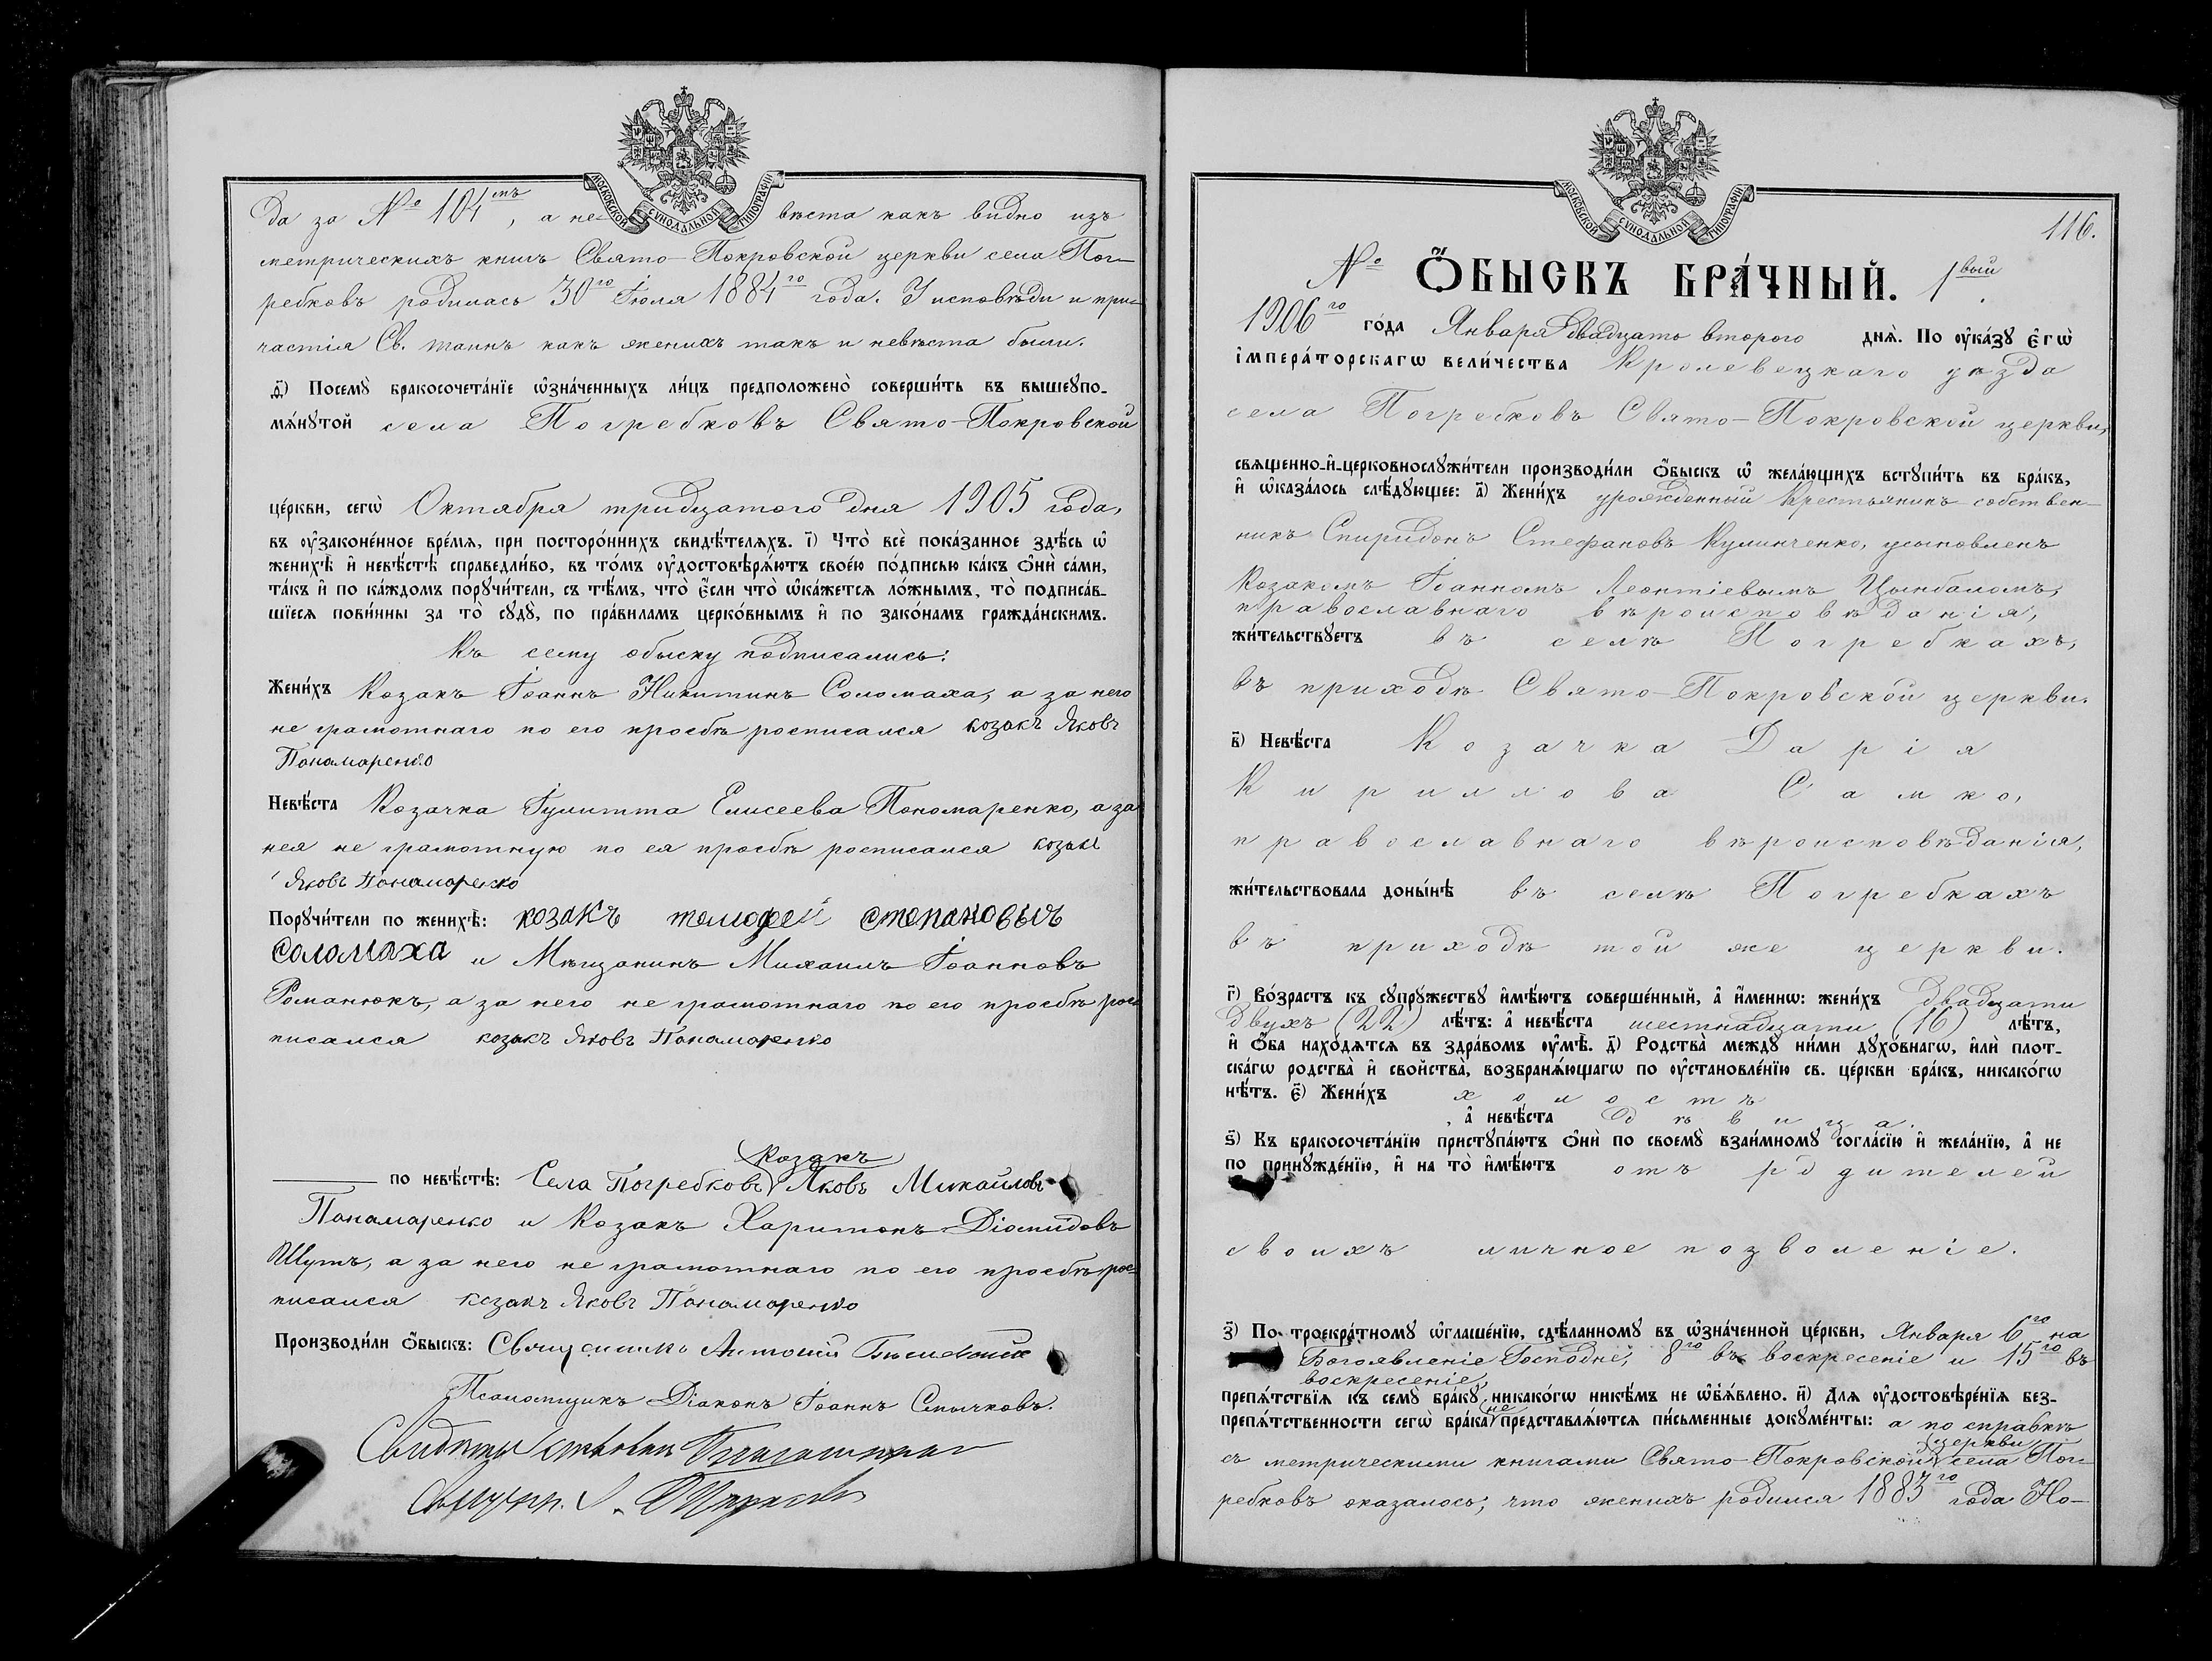 МОСКОВСКОЙ СѴНОДАЛЬНОЙ ТИПОГРАФІИ
да за № 104мъ, а не- вѣста какъ видно изъ
метрическихъ книгъ Свято-Покровской церкви села Пог-
ребковъ родилась 30го Іюля 1884го года. У исповѣди и при-
частія Св. таинъ какъ женихъ такъ и невѣста были.
д҃і) Посемꙋ̀ бракосочета́нїе ѡ҆зна́ченныхъ ли́цъ предположено̀ соверши́ть въ вышеꙋпо-
мѧ́нꙋтой села Погребковъ Свято-Покровской
це́ркви, сегѡ̀ Октября тридцатого дня 1905 года,
въ ᲂу҆зако́ненное вре́мѧ, при посторо́ннихъ свидѣ́телѧхъ. і҃) Что̀ всѐ пока́занное здѣ́сь ѡ҆
женихѣ̀ и҆ невѣ́стѣ справедли́во, въ то́мъ ᲂу҆достовѣрѧ́ютъ свое́ю по́дписью ка́къ ѻ҆нѝ са́ми,
та́къ и҆ по ка́ждомъ порꙋчи́тели, съ тѣ́мъ, что̀ є҆́сли что̀ ѡ҆ка́жетсѧ ло́жнымъ, то̀ подписа́в-
шїесѧ пови́нны за то̀ сꙋдꙋ̀, по пра́виламъ церко́внымъ и҆ по зако́намъ гражда́нскимъ.
Къ сему обыску подписались:
Жени́хъ Козакъ Іоаннъ Никитинъ Соломаха, а за него
не грамотнаго по его просьбѣ росписался козакъ Яковъ
Пономаренко
Невѣ́ста Козачка Іулитта Елисеева Пономаренко, а за
нея не грамотную по ея просьбѣ росписался козакъ
Яковъ Пономаренко
Порꙋчи́тели по женихѣ̀: козакъ тимофей степановычъ
соломаха и Мѣщанинъ Михаилъ Іоанновъ
Романюкъ, а за него не грамотнаго по его просьбѣ рос-
писался козакъ Яковъ Пономаренко
Козакъ
по невѣ́стѣ: Села Погребковъ Яковъ Михайловъ
Пономаренко и Козакъ Харитонъ Діомидовъ
Шутъ, а за него не грамотнаго по его просьбѣ рос-
писался козакъ Яковъ Пономаренко
Производи́ли ѻ҆́быскъ: Священникъ Антоній
Псаломщикъ Діаконъ Іоаннъ Смычковъ.
МОСКОВСКОЙ СѴНОДАЛЬНОЙ ТИПОГРАФІИ
116.
№ Ѻ҆́БЫСКЪ БРА́ЧНЫЙ. 1вый.
1906го го́да Января двадцать второго днѧ̀. По ᲂу҆ка́зꙋ є҆гѡ̀
і҆мпера́торскагѡ вели́чества Кролевецкаго уѣзда
села Погребковъ Свято-Покровской церкви,
свѧщенно-и҆-церковнослꙋжи́тели производи́ли ѻ҆́быскъ ѡ҆ жела́ющихъ встꙋпи́ть въ бра́къ,
и҆ ѡ҆каза́лось слѣ́дꙋющее: а҃) Жени́хъ урожденный Крестьянинъ-собствен-
никъ Спиридонъ Стефановъ Кулинченко, усыновленъ
Козакомъ Іоанномъ Леонтіевымъ Цымбаломъ,
православнаго вѣроисповѣданія,
жи́тельствꙋетъ въ селѣ Погребкахъ,
въ приходѣ Свято-Покровской церкви.
в҃) Невѣ́ста Козачка Дарія
Кириллова Самко,
православнаго вѣроисповѣданія,
жи́тельствовала доны́нѣ въ селѣ Погребкахъ
въ приходѣ той же церкви.
г҃) Во́зрастъ къ сꙋпрꙋ́жествꙋ и҆мѣ́ютъ соверше́нный, а҆ и҆́менно: жени́хъ двадцати
двухъ (22) лѣ́тъ: а҆ невѣ́ста шестнадцати (16) лѣ́тъ,
и҆ ѻ҆́ба нахо́дѧтсѧ въ здра́вомъ ᲂу҆мѣ̀. д҃) Родства̀ междꙋ̀ ни́ми дꙋхо́внагѡ, и҆лѝ плот-
ска́гѡ родства̀ и҆ сво́йства, возбранѧ́ющагѡ по ᲂу҆становле́нїю св. це́ркви бра́къ, никако́гѡ
нѣ́тъ. є҃) Жени́хъ холостъ
, а҆ невѣ́ста дѣвица.
ѕ҃) Къ бракосочета́нїю пристꙋпа́ютъ ѻ҆нѝ по своемꙋ̀ взаи́мномꙋ согла́сїю и҆ жела́нїю, а҆ не
по принꙋжде́нїю, и҆ на то̀ и҆мѣ́ютъ отъ родителей
своихъ личное позволеніе.
з҃) По троекра́тномꙋ ѡ҆глаше́нїю, сдѣ́ланномꙋ въ ѡ҆зна́ченной це́ркви, Января 6го на
Богоявленіе Господне, 8го въ воскресеніе и 15го въ
воскресеніе,
препѧ́тствїѧ къ семꙋ̀ бра́кꙋ никако́гѡ никѣ́мъ не ѡ҆б̾ѧ́влено. и҃) Длѧ ᲂу҆достовѣре́нїѧ без-
не
препѧ́тственности сегѡ̀ бра́ка представлѧ́ютсѧ пи́сьменные докꙋме́нты: а по справкѣ
церкви
съ метрическими книгами Свято-Покровской села Пог-
ребковъ оказалось, что женихъ родился 1883го года Но-